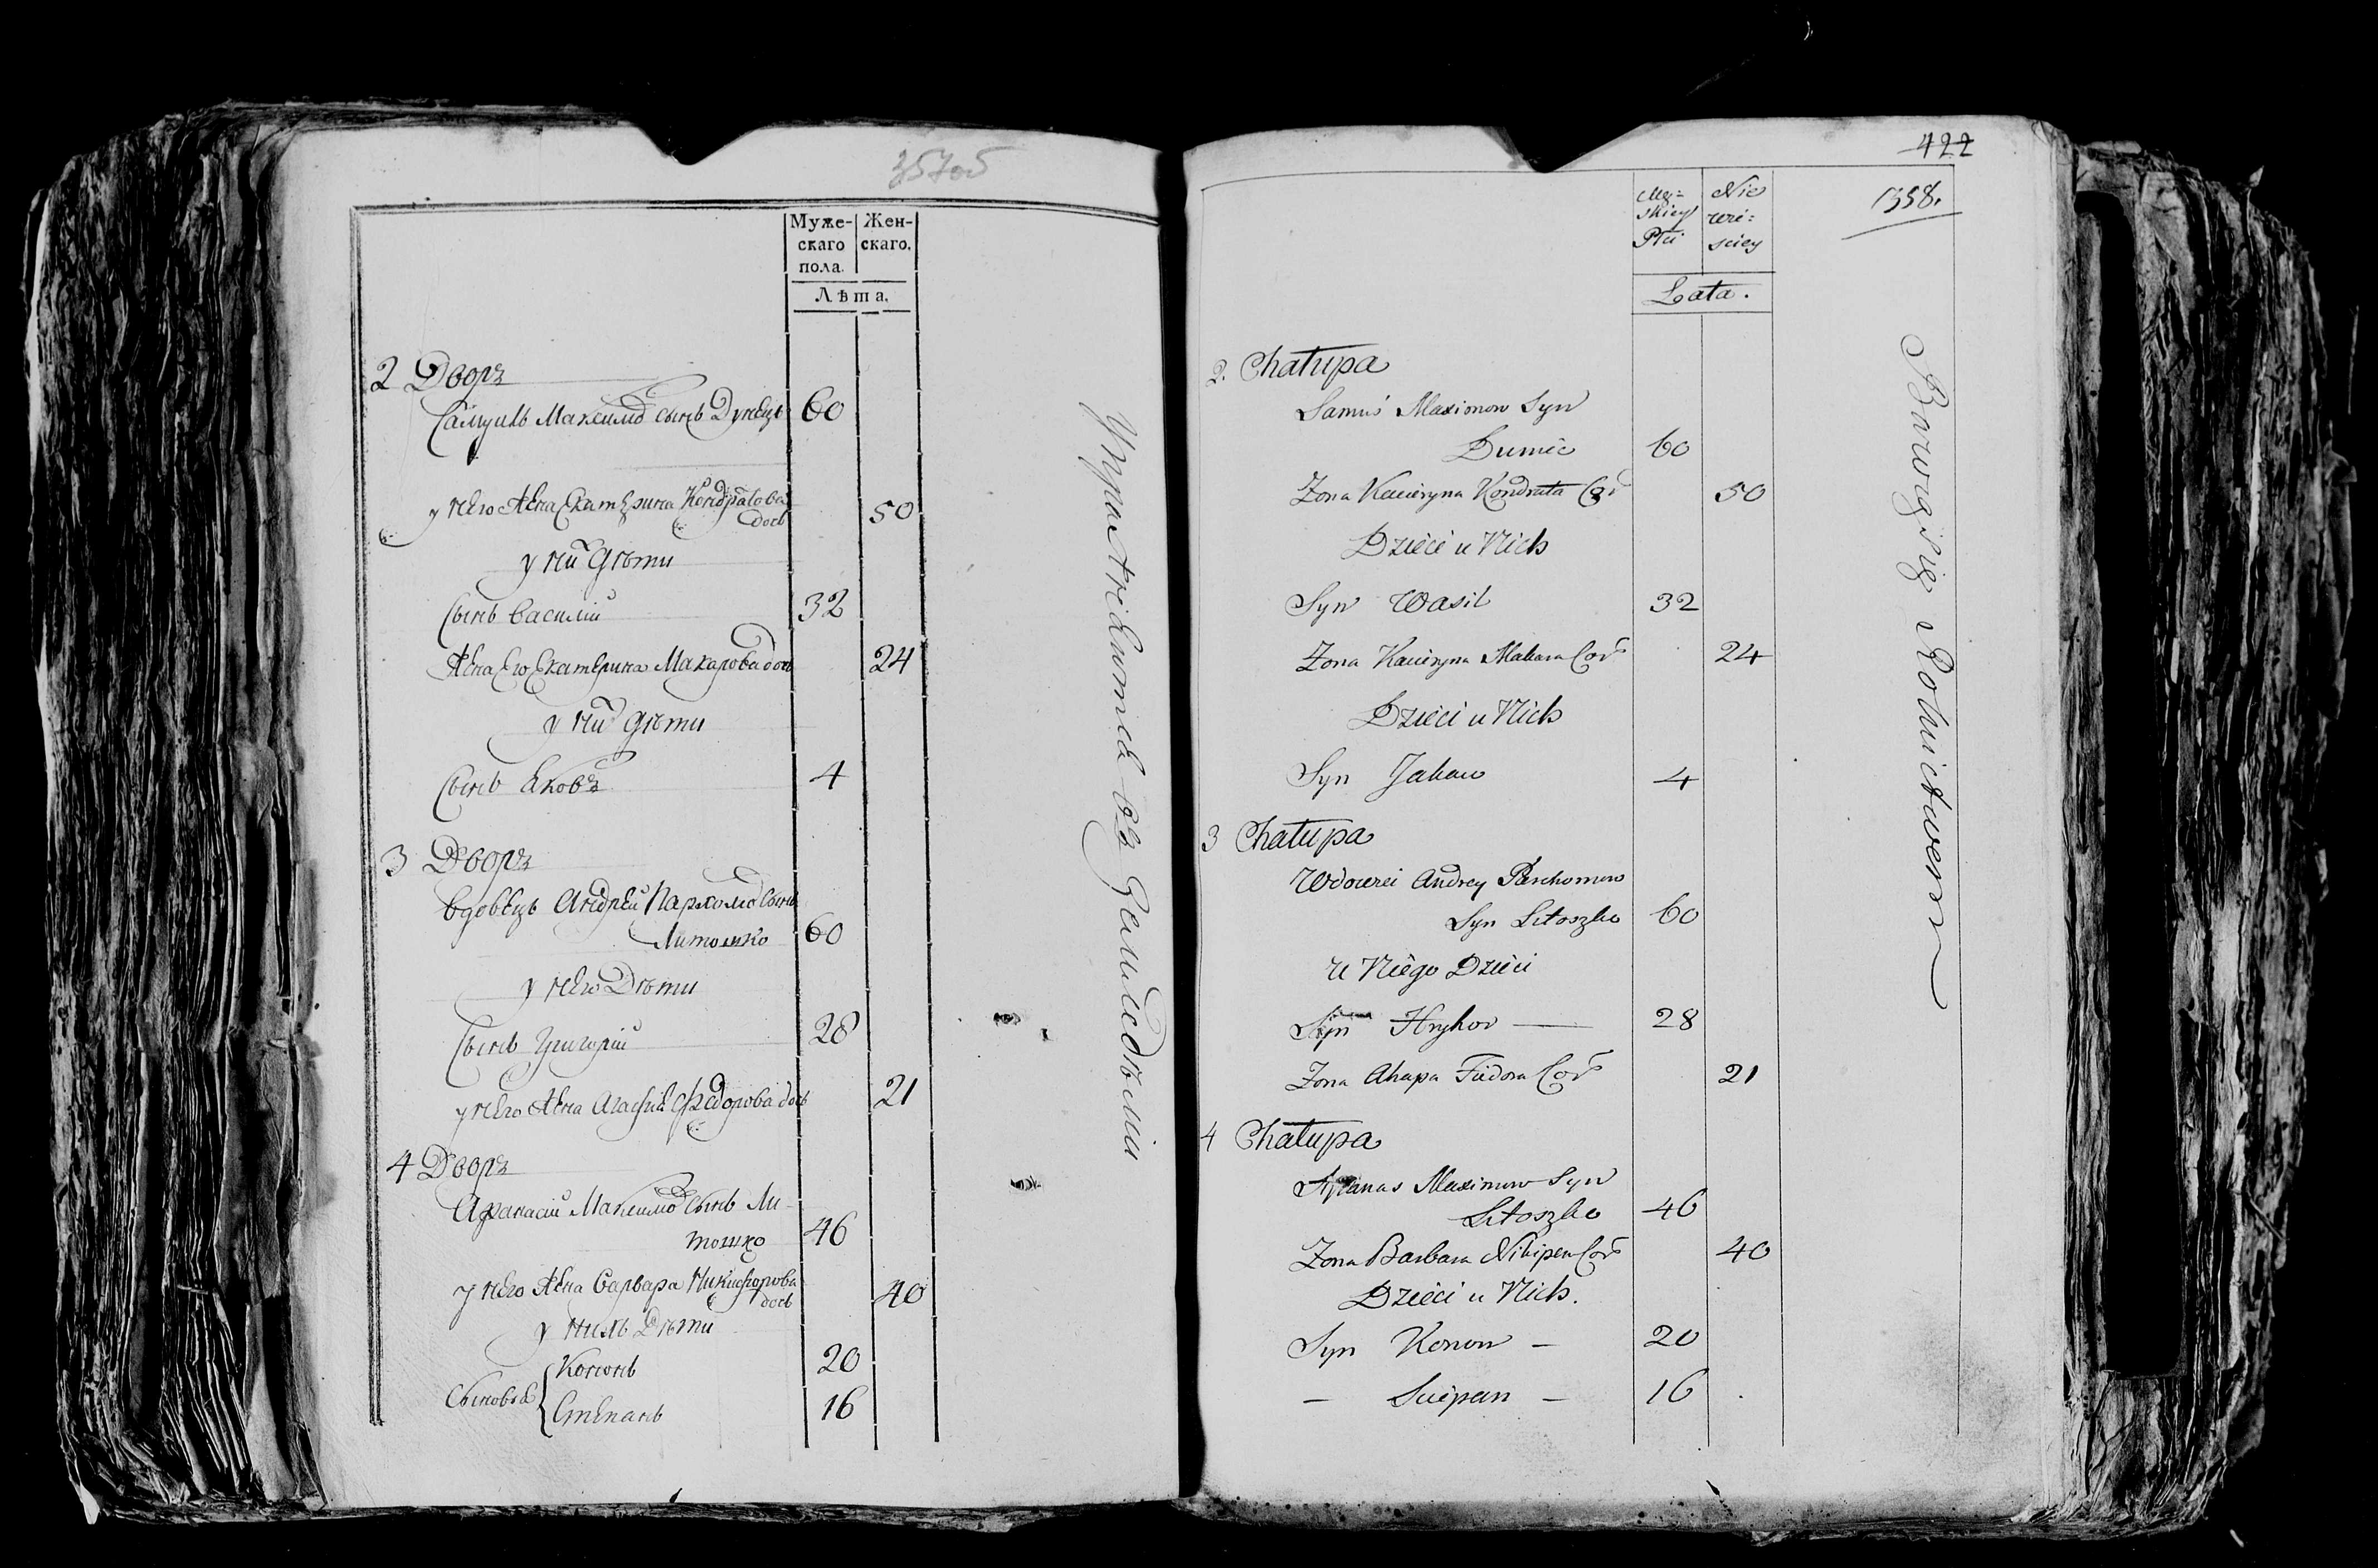 357об
Муже-
скаго
пола.
Жен-
скаго.
Лѣта.
2 Дворъ
Самуиль Максимо Сынъ Дунецъ 60
у него Жена Екатерина Кондратова
дочь 50
у ни дѣти
Сынъ Василий 32
Жена Его Екатерина Макарова дочь 24
у ни дѣти
Сынъ Яковъ 4
3 Дворъ
Вдовецъ Андрей Пархомо Сынъ
Литошко 60
у него Дѣти
Сынъ Григорій 28
у него Жена Агафия Федорова дочь 21
4 Дворъ
Афанасій Максимо Сынъ Ли-
тошко 46
у него Жена Варвара Никифорова
дочь 40
у нихъ Дѣти
Сыновья Кононъ 20
Степанъ 16
422
1358.
Mez-
skiey
Płci
Nie
wie-
sciey
Lata.
2. Chałupa
Samuś Maximow Syn
Duniec 60
Zona Kacieryna Kondrata Cor 50
Dzieci u Nich
Syn Wasil 32
Zona Kacieryna Makara Cor 24
Dzieci u Nich
Syn Jakow 4
3 Chałupa
Wdowiec Andrey Parchomow
Syn Litoszko 60
u Niego Dzieci
Syn Hryhor 28
Zona Ahapa Fiedora Cor 21
4 Chałupa
Afanas Maximow Syn
Litoszko 46
Zona Barbara Nikipera Cor 40
Dzieci u Nich.
Syn Konon — 20
— Sciepan — 16